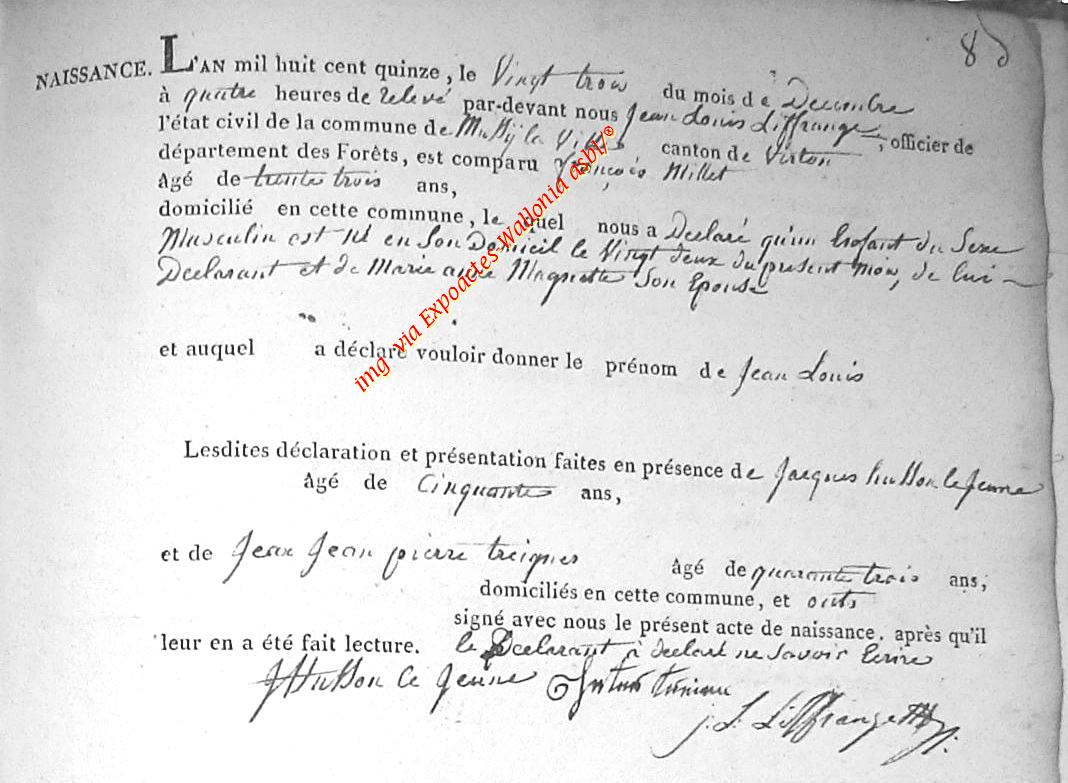 8
NAISSANCE. L'AN mil huit cent quinze, le Vingt trois du mois de Decembre
à quatre heures de relevé par-devant nous Jean Louis Liffrange, officier de
l'état civil de la commune de Mussy la Ville canton de Virton
département des Forêts, est comparu François Millet
Agé de trente trois ans,
domicilié en cette commune, le quel nous a Declaré qu'un Enfant du Sexe
Masculin est né en Son Domicil le Vingt deux du present mois, de lui
Declarant et de Marie Magnette Son Epouse
et auquel a déclaré vouloir donner le prénom de Jean Louis
Lesdites déclaration et présentation faites en présence de Jacques husson le Jeune
Âgé de Cinquante ans,
et de Jean Jean pierre Âgé de quarante trois ans,
domiciliés en cette commune, et onts
signé avec nous le présent acte de naissance, après qu'il
leur en a été fait lecture. le Declarant à declaré ne Savoir Ecrire
JHusson le Jeune
j. L. Liffrange
img via Expoactes Wallonia asbl®